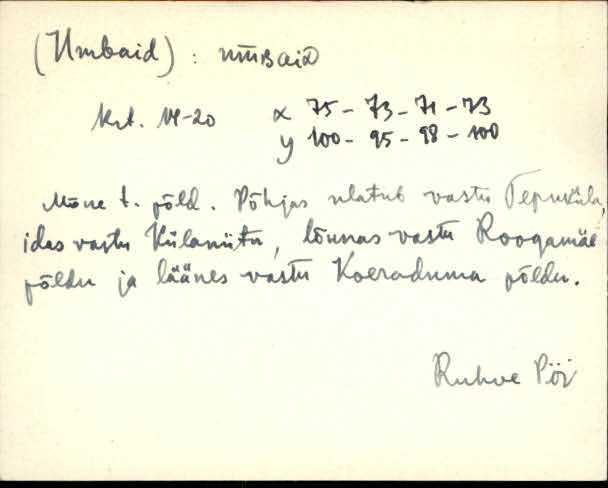 (Umbaid) : uмBaid
krt. VI-20 x 75 - 73 - 71 - 73
y 100 - 95 - 98 - 100
Mõne t. põld. Põhjas ulatub vastu Tepuküla,
idas vastu Külaniitu, lõunas vastu Roogamäe
põldu ja läänes vastu Koeraduma põldu.
Ruhve Pöi